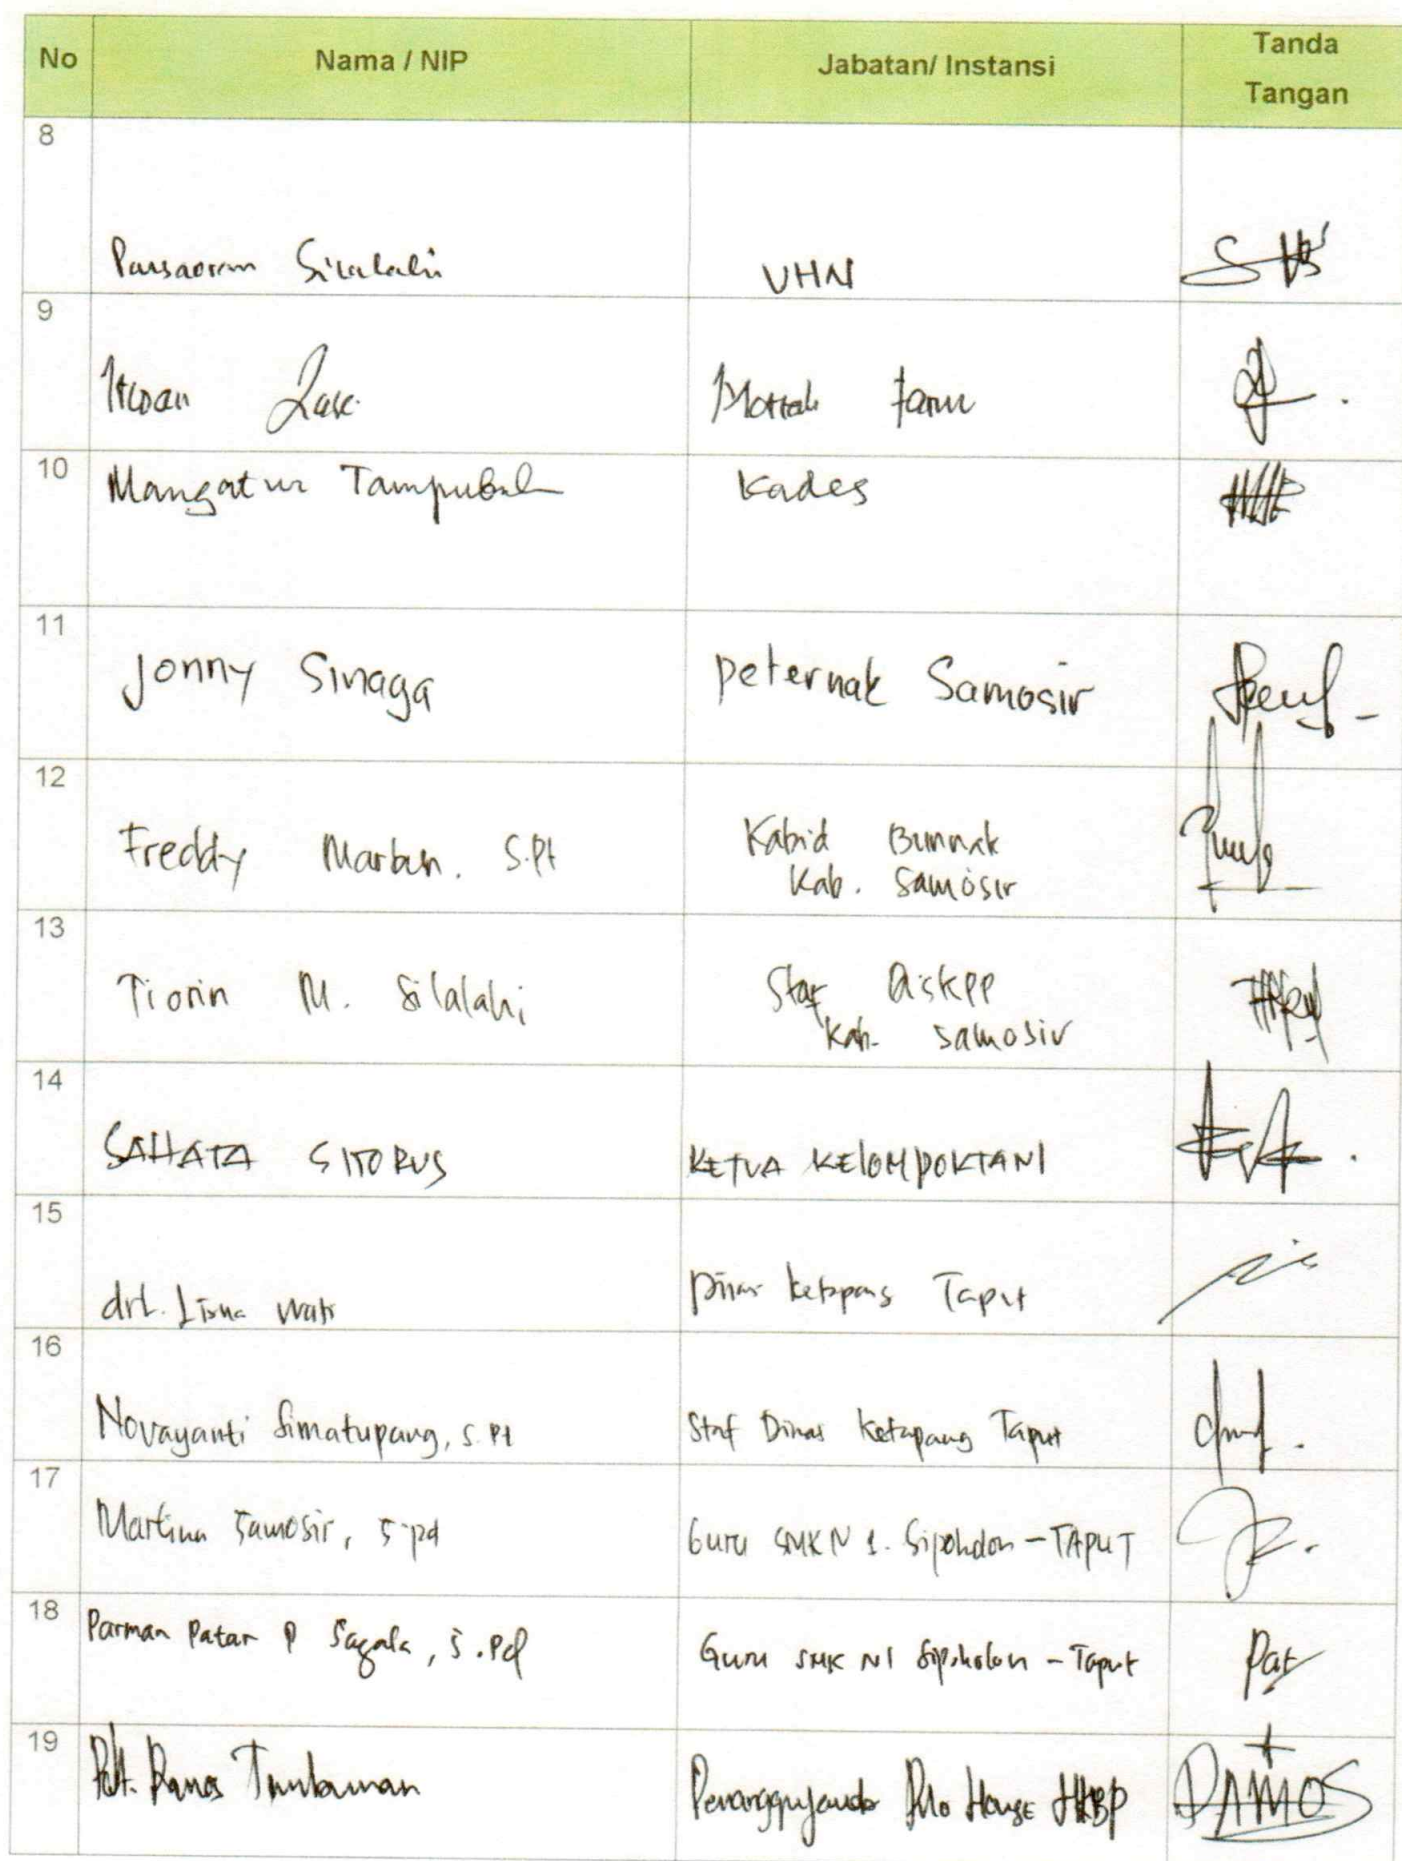 No Nama / NIP Jabatan/ Instansi Tanda Tangan
8
Parsaoran Silalahi UHN
9
Irwan
Farm
10
Mangatur Tampubolon Kades
11
Jonny Sinaga peternak Samosir
12
Freddy Marbun. S.Pt Kabid Bunnak
Kab. Samosir
13
Tiorin M. Silalahi Staf DisKPP
Kab. Samosir
14
SAHATA SITORUS KETUA KELOMPOKTANI
15
drh. Lisna Wati Dinas Ketapang Taput
16
Novayanti Simatupang, S.Pt Staf Dinas Ketapang Taput
17
Martina Samosir, S.pd Guru SMK N 1. Sipoholon - TAPUT
18
Parman Patar P Sagala, S.Pd Guru SMK N1 Sipoholon - Taput
Pat
19
Pdt. Ramos House HKBP
RAMOS